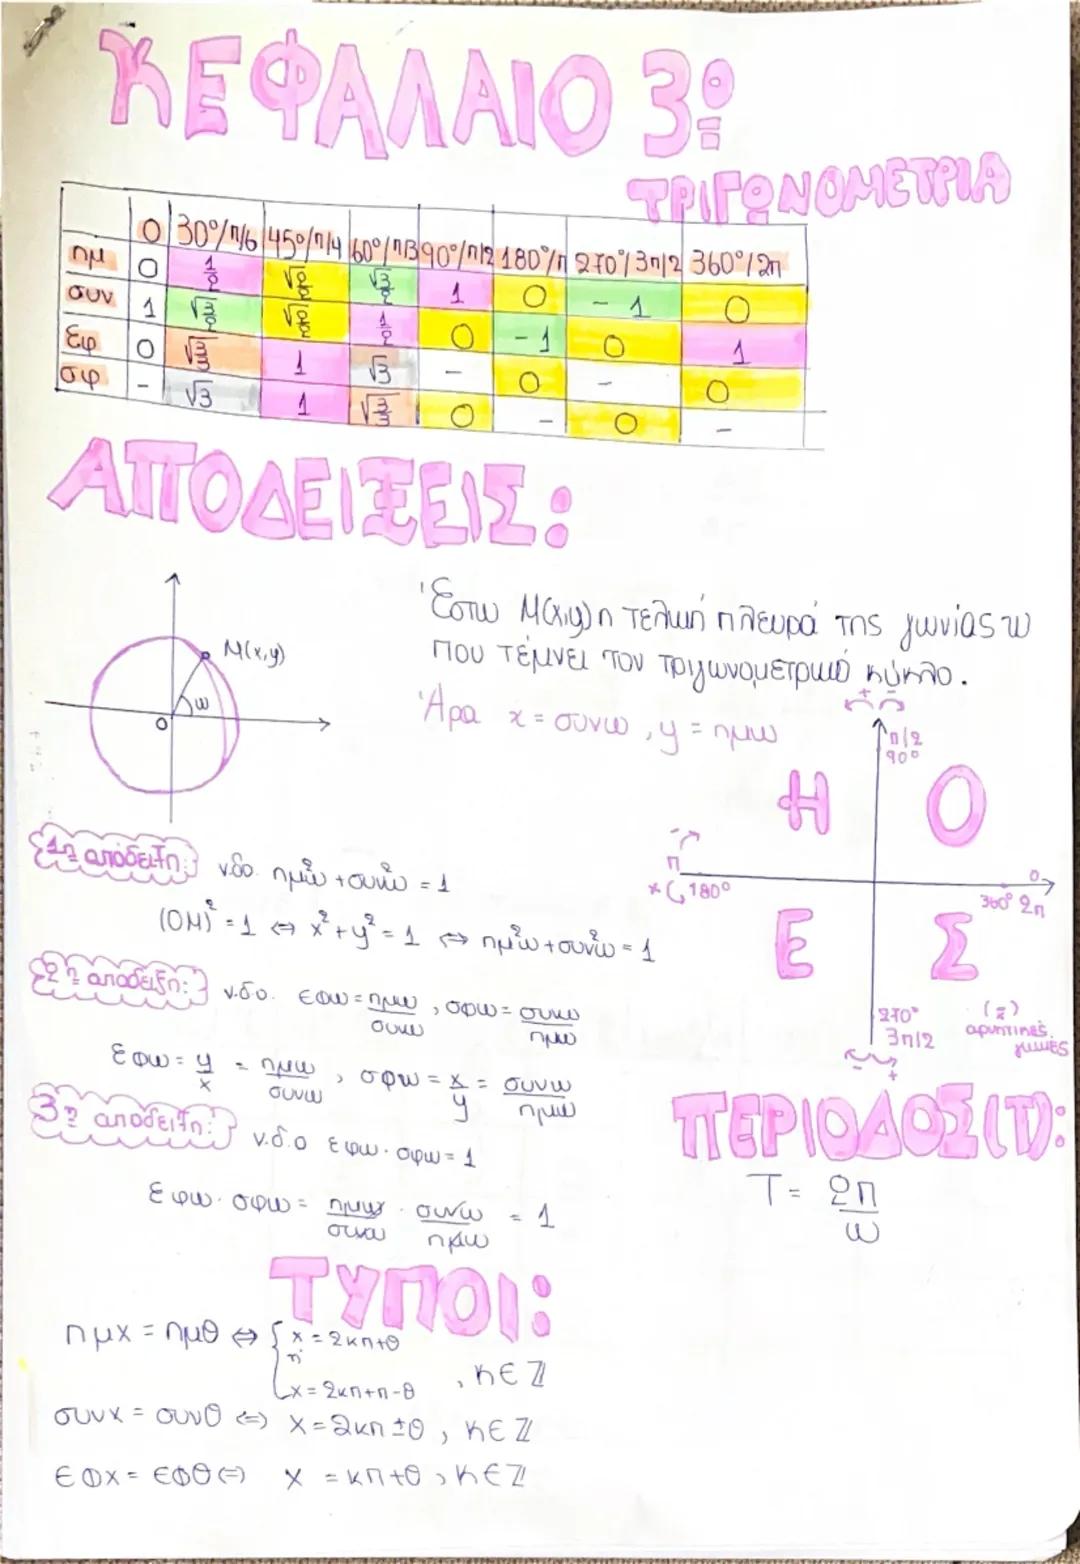 ΚΕΦΑΛΑΙΟ 3º
ΤΡΙΓΩΝΟΜΕΤΡΙΑ
0 30°/π/6 45°/π/4 60°/π/3 90°/π/2 180°/π 270°/3π/2 360°/2π
ημ 0 1/2 √2/2 √3/2 1 0 -1 0
συν 1 √3/2 √2/2 1/2 0 -1 0 1
εφ 0 √3/3 1 √3 - 0 - 0
σφ - √3 1 √3/3 0 - 0 -
ΑΠΟΔΕΙΞΕΙΣ:
Έστω M(x,y) η τελική πλευρά της γωνίας ω
που τέμνει τον τριγωνομετρικό κύκλο.
Άρα x = συνω, y = ημω
M(x,y)
ω
O
+ -
π/2
90°
Η Ο
π
180°
0
360° 2π
Ε Σ
270°
3π/2
- +
1η απόδειξη:
ν.δο. ημ²ω + συν²ω = 1
(ΟΜ)² = 1 ⇔ x² + y² = 1 ⇔ ημ²ω + συν²ω = 1
2η απόδειξη:
ν.δο. εφω = ημω/συνω, σφω = συνω/ημω
εφω = y/x = ημω/συνω, σφω = x/y = συνω/ημω
3η απόδειξη:
ν.δ.ο εφω · σφω = 1
εφω · σφω = ημω/συνω · συνω/ημω = 1
ΠΕΡΙΟΔΟΣ(Τ):
T = 2π/ω
ΤΥΠΟΙ:
ημx = ημθ ⇔ { x = 2κπ+θ
ή
x = 2κπ+π-θ , κ∈ℤ
συνx = συνθ ⇔ x = 2κπ ± θ, κ∈ℤ
εφx = εφθ ⇔ x = κπ+θ, κ∈ℤ